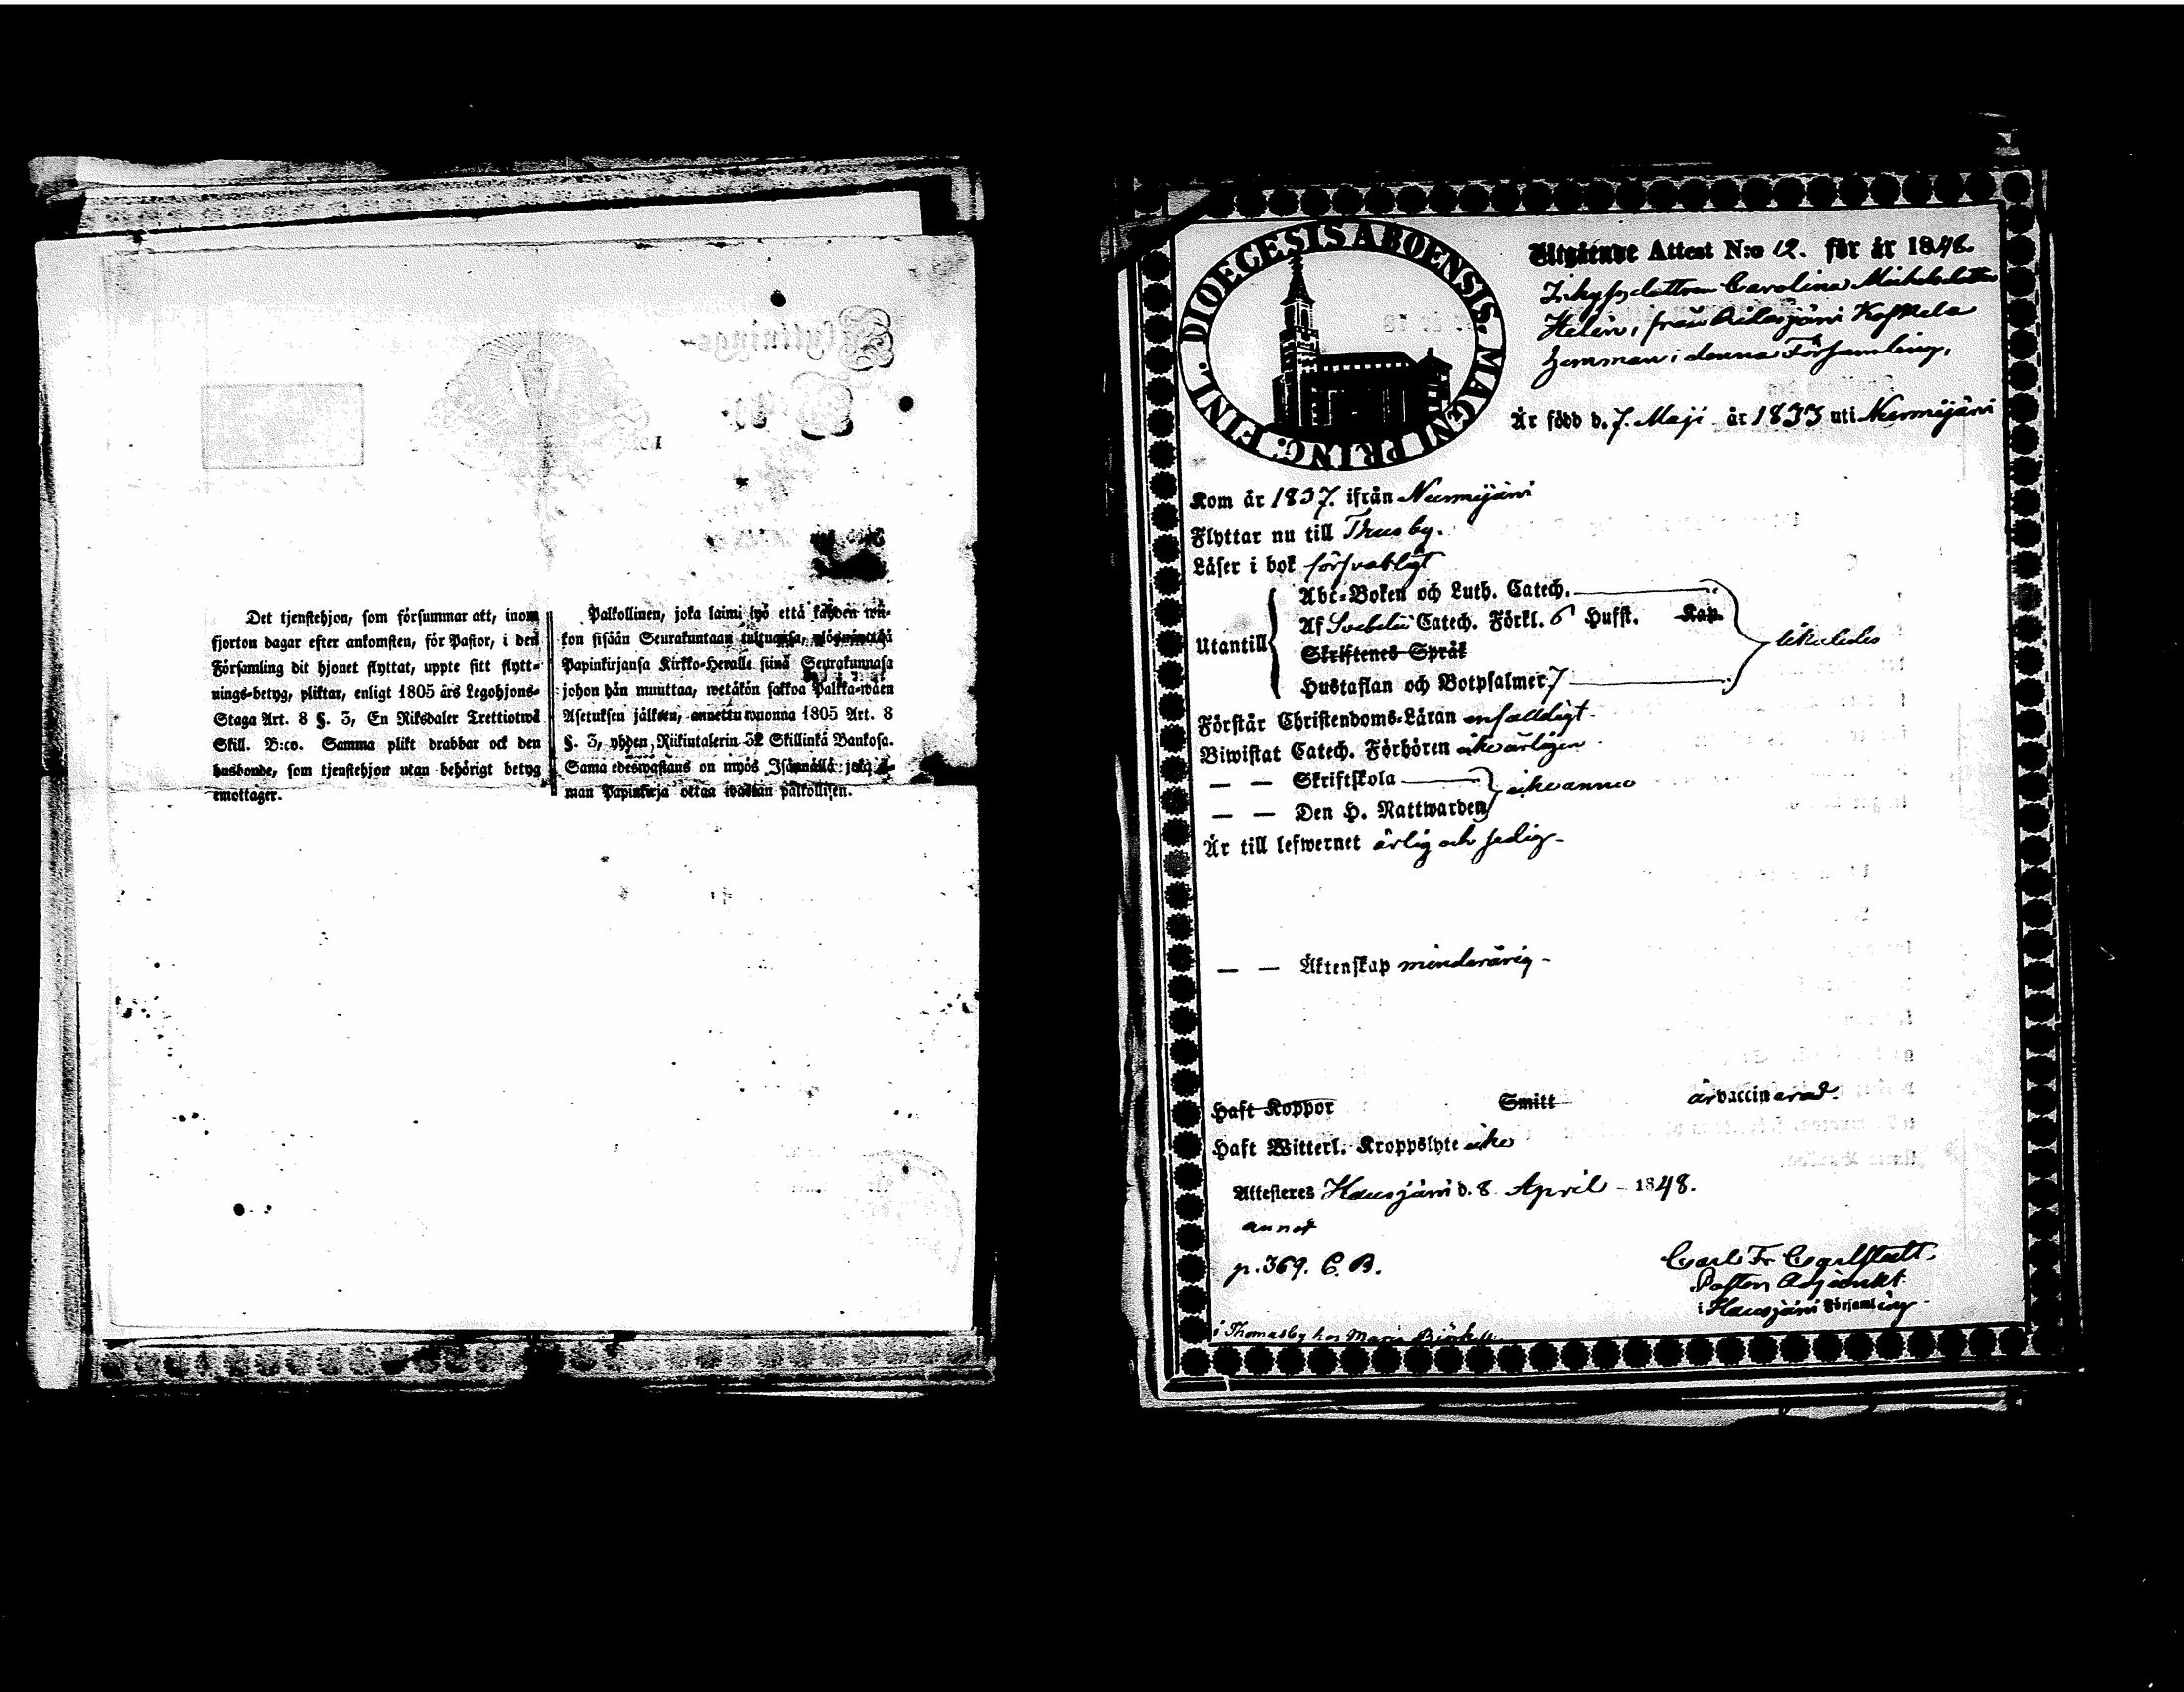 Flyttnings-
Det tjenstehjon, som försummar att, inom
fjorton dagar efter ankomsten, för Pastor, i den
Församling dit hjonet flyttat, uppte sitt flytt-
nings-betyg, pliktar, enligt 1805 års Legohjons-
Staga Art. 8 §. 3, En Riksdaler Trettiotwå
Skill. B:co. Samma plikt drabbar ock den
husbonde, som tjenstehjon utan behörigt betyg
emottager.
Palkollinen, joka laimi lyö että kahden wii-
kon sisään Seurakuntaan tultuansa,
Papinkirjansa Kirkko-Herralle siinä Seurakunnasa
johon hän muuttaa, wetäkön sakkoa Palkka-wäen
Asetuksen jälken, annettu wuonna 1805 Art. 8
§. 3, yhden Riikintalerin 32 Skillinkä Bankosa.
Sama edeswastaus on myös Isännällä: joka il-
man Papinkirja ottaa wastan palkollisen.
DIOECESIS ABOENSIS. MAGNI PRINC. FINL.
Utgående Attest N:o 12. för år 1848.
dottren Carolina Michelsdotter
Helin, från Ridasjärvi Koskela
hemman i denna Församling,
Är född d. 7. Maji år 1833 uti Nurmijärvi
Kom år 1837. ifrån Nurmijärvi
Flyttar nu till Thusby.
Läser i bok försvarligt
Utantill
Abc-Boken och Luth. Catech.
Af Svebelii Catech. Förkl. 6 Hufst. Kap
Skriftenes Språk
Hustaflan och Botpsalmer 7
likaledes
Förstår Christendoms-Läran enfaldigt.
Biwistat Catech. Förhören icke årligen.
— — Skriftskola
— — Den H. Nattwarden
icke ännu
Är till lefwernet ärlig och sedig.
— — Äktenskap minderårig.
Haft Koppor Smitt är vaccinerad.
Haft Witterl. Kroppslyte icke
Attesteres Hausjärvi d. 8. April 1848.
p. 369. C. B.
Carl Fr. Carlstedt.
Pastors Adjunkt
i Hausjärvi Församling.
i Thomasby hos Maria